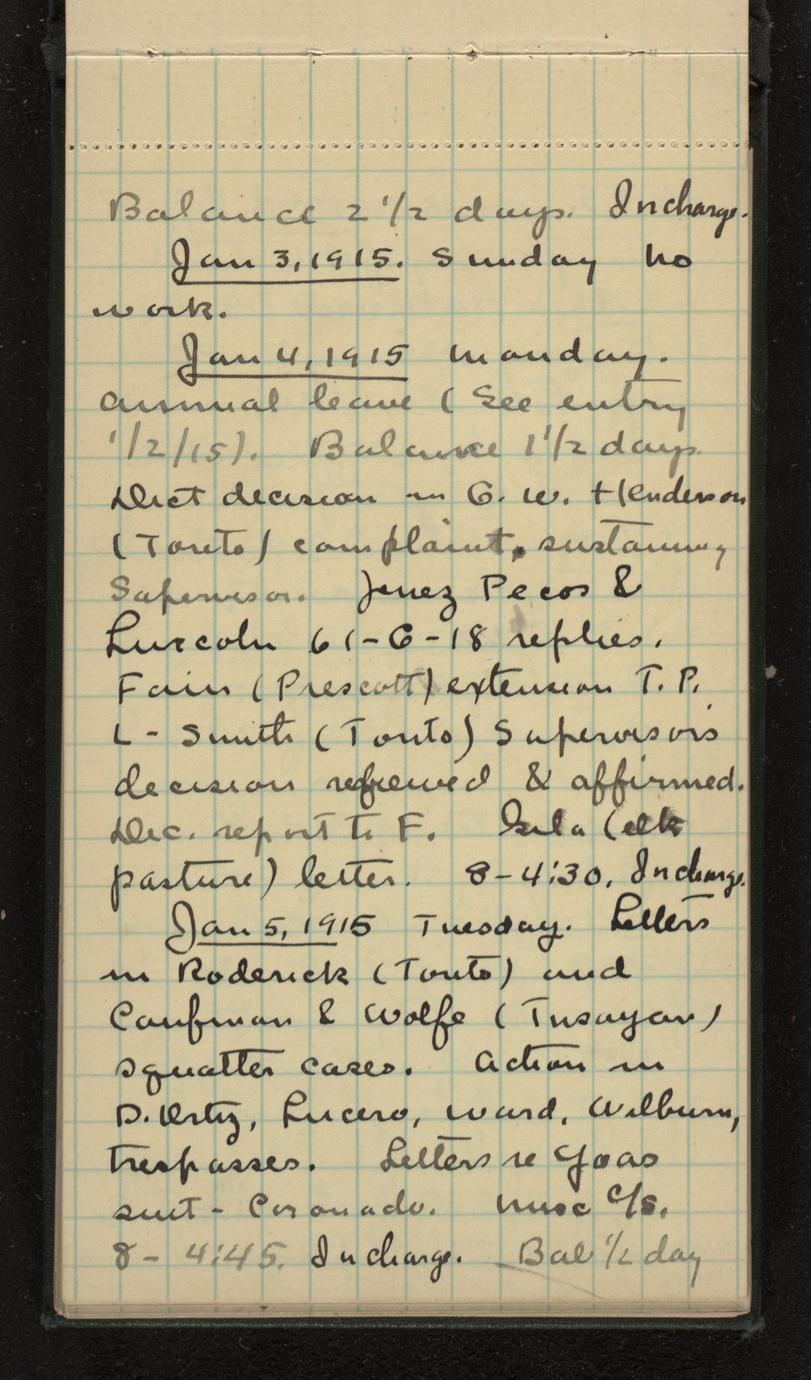 Balance 2 1/2 days. In charge.
Jan 3, 1915. Sunday no
work.
Jan 4, 1915 Monday.
Annual leave (See entry
1/2/15). Balance 1 1/2 days
Dict decision in G. W. Henderson
(Tonto) complaint, sustaining
Supervisor. Jemez Pecos &
Lincoln 61-G-18 replies.
Fain (Prescott) extension T. P.
L- Smith (Tonto) Supervisors
decision reviewed & affirmed.
Dec. report to F. Gila (elk
pasture) letter. 8-4:30. In charge.
Jan 5, 1915 Tuesday. Letters
in Roderick (Tonto) and
Caufman & Wolfe (Tusayan)
squatter cases. Action in
D. Ortiz, Lucero, Ward, Wilburn,
trespasses. Letters re Yoas
suit - Coronado. Misc c/s.
8- 4:45. In charge. Bal 1/2 day